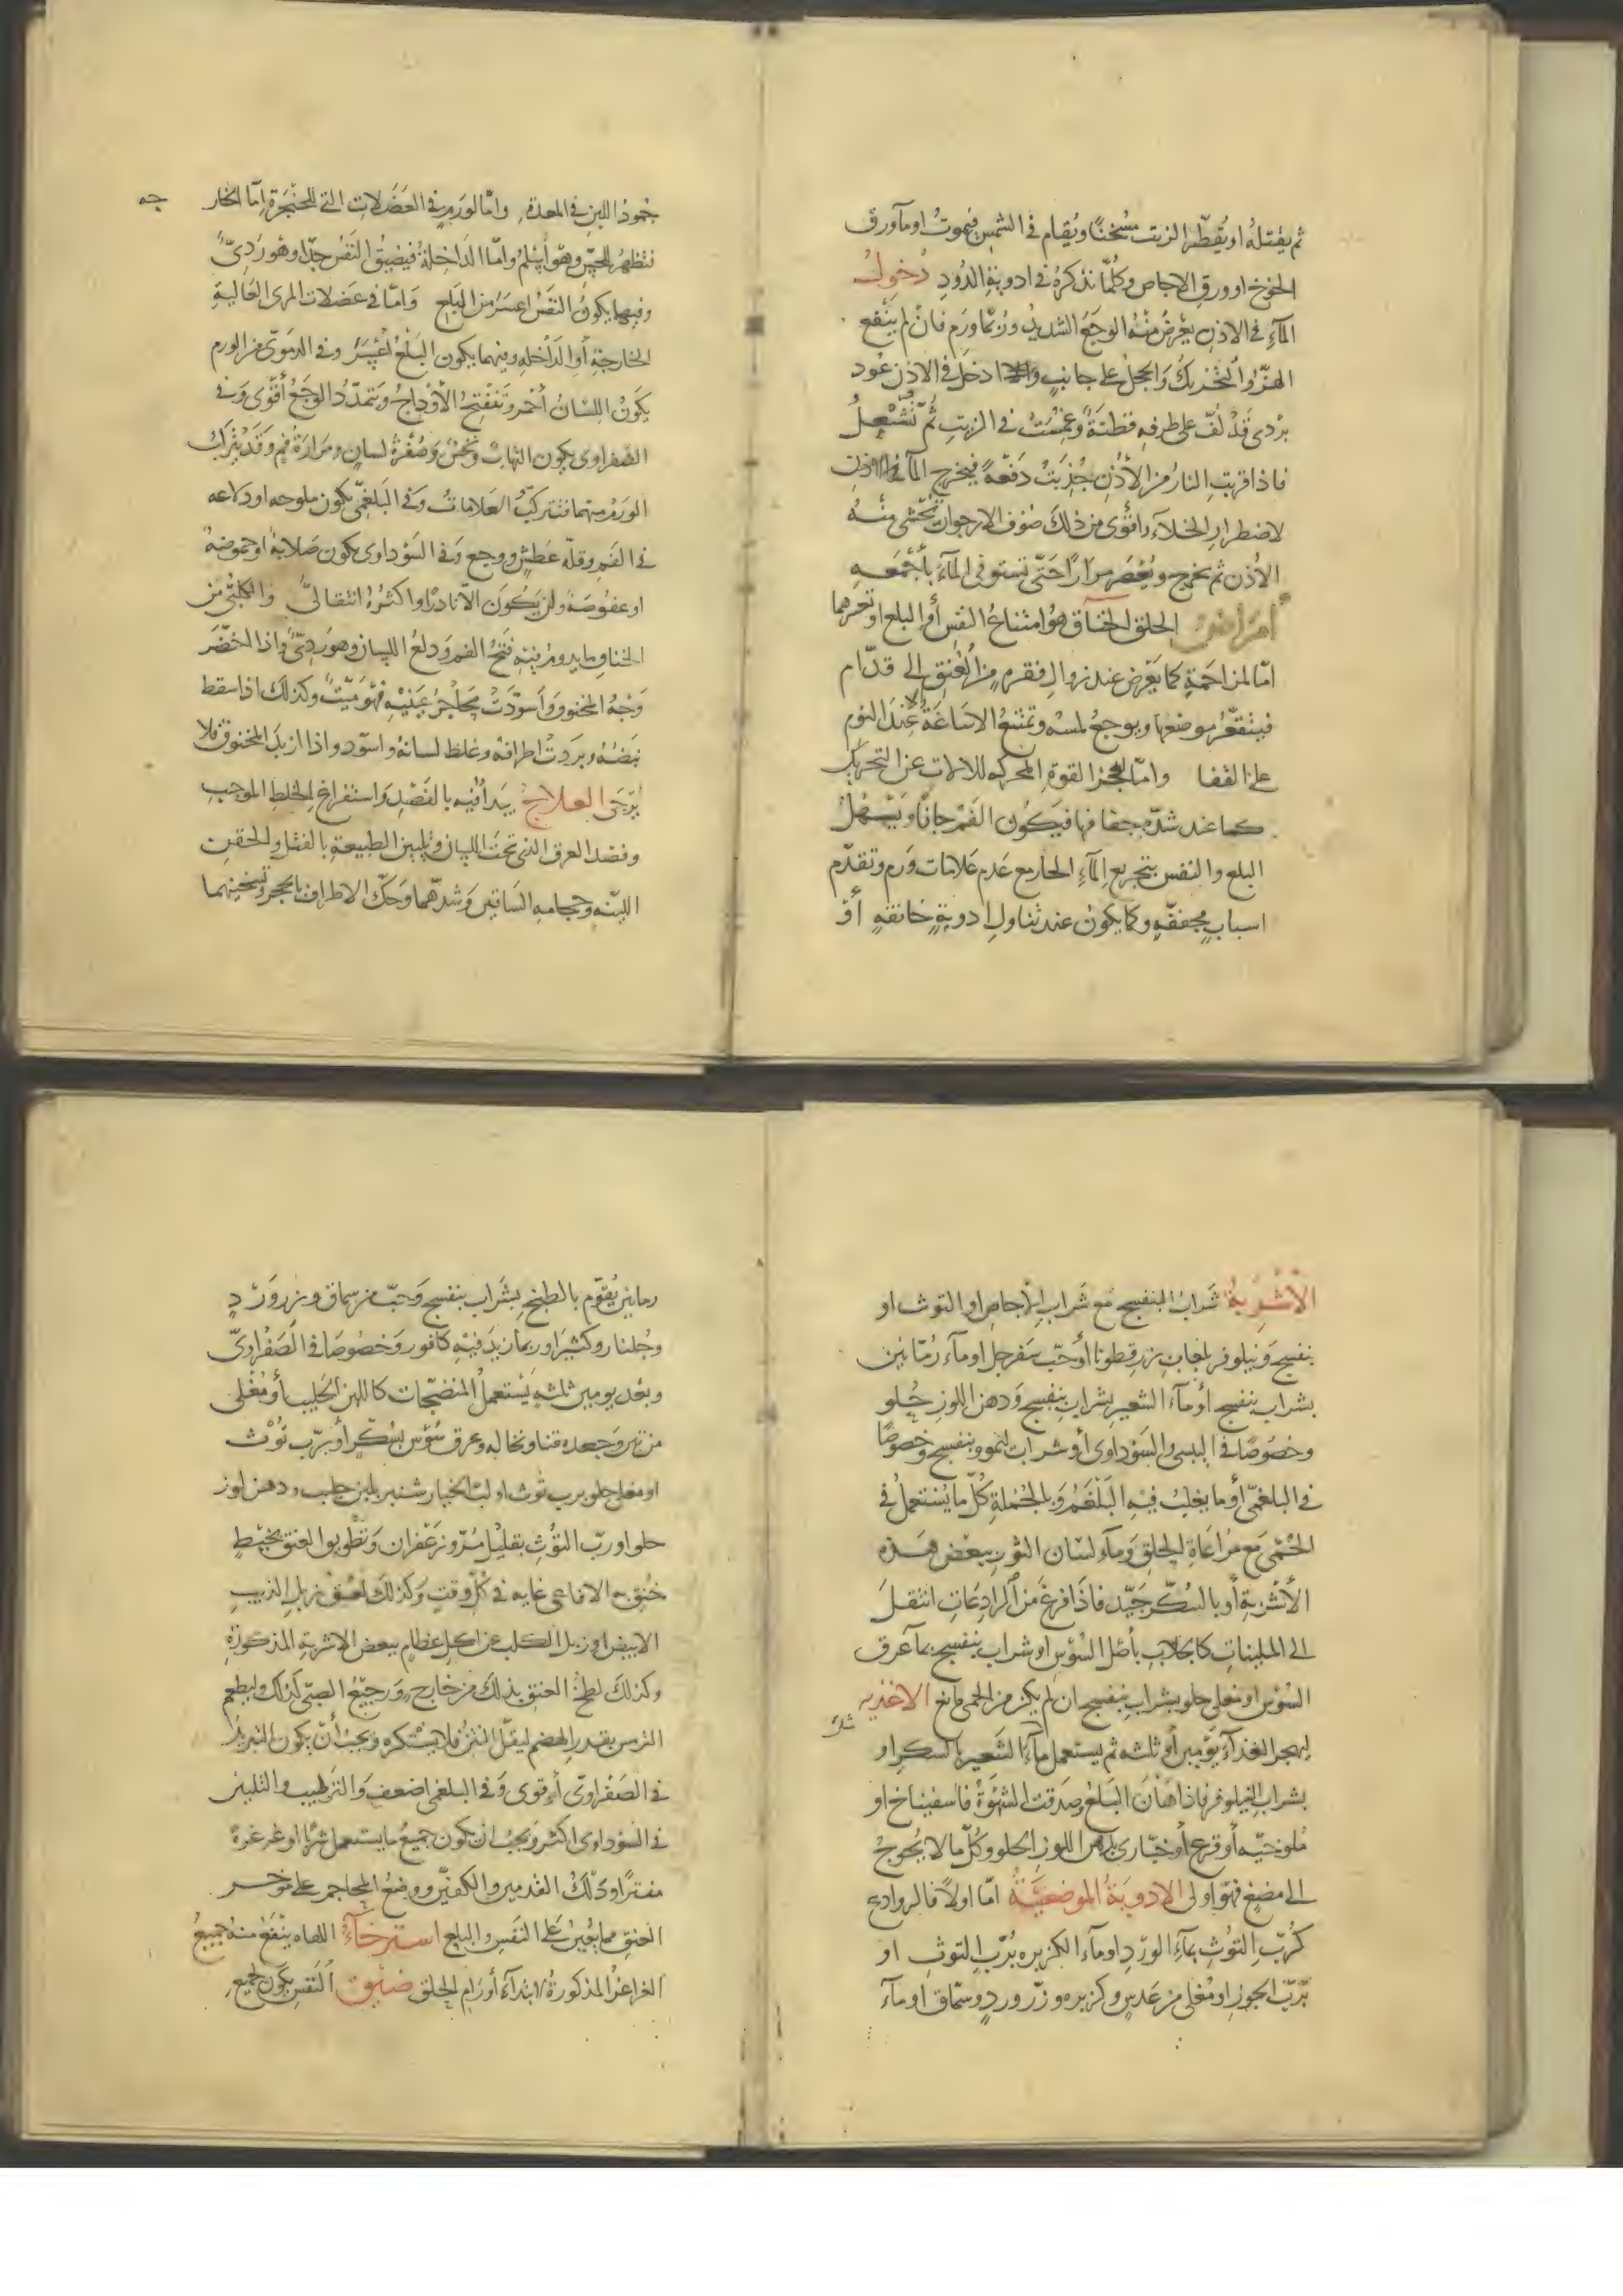 ثم يقتله او يقطر الزيت مسخنا ويقام في الشمس فيموت او ماء ورق
الخوخ او ورق الاجاص وكلما نذكره في ادوية الدود دخول
الماء في الاذن يعرض منه الوجع الشديد وربما ورم فان لم ينفع
الهز والتحريك والحجل على جانب ادخل في الاذن عود
بردى قد لف على طرفه قطنة وغمست في الزيت ثم تشعل
فاذا قربت النار من الاذن جذبت دفعة فيخرج الماء
لاضطرار الخلاء واقوى من ذلك صوف الارجوان تحشى منه
الاذن ثم يخرج ويعصر مرارا حتى تستوفى الماء باجمعه
أمراض الحلق الخناق هو امتناع النفس أو البلع او تعسرهما
اما لمزاحمة كما يعرض عند زوال فقره من العنق الى قدام
فينقعر موضعها ويوجع لمسه وتمتنع الاساغة الا عند النوم
على القفا واما لعجز القوة المحركه للالات عن التحريك
كما عند شدة جفافها فيكون الفم جافا ويسهل
البلع والنفس بتجريع الماء الحار مع عدم علامات ورم وتقدم
اسباب مجففه وكما يكون عند تناول ادوية خانقه أو
جمود اللبن في المعدة واما لورم في العضلات التي للحنجرة اما الخار
جه
فتظهر للحس وهو أسلم واما الداخلة فيضيق النفس جدا وهو ردئ
وفيهما يكون النفس اعسر من البلع واما في عضلات المرى العالية
الخارجة أو الداخله وفيهما يكون البلع أعسر وفي الدموى من الورم
يكون اللسان أحمر وتنفتح الأوداج ويتمدد الوجع أقوى وفي
الصفراوى يكون التهاب ونخس وصفرة لسان ومرارة فم وقد يتركب
الورم منهما فتتركب العلامات وفي البلغمى يكون ملوحه او
في الفم وقلة عطش ووجع وفي السوداوى يكون صلابة او حموضة
او عفوصة ولن يكون الا نادرا واكثره انتقالى والكلبى من
الخناق ما يدوم فيه فتح الفم ودلع اللسان وهو ردئ واذا اخضر
وجه المخنوق واسودت محاجر عينيه فهو ميت وكذلك اذا سقط
نبضه وبردت اطرافه وغلظ لسانه واسود واذا ازبد المخنوق فلا
يرجى العلاج يبدأ فيه بالفصد واستفراغ الخلط الموجب
وفصد العرق الذى تحت اللسان وتليين الطبيعة بالفتل والحقن
اللينه وحجامه الساقين وشدهما وحك الاطراف بالحجر وتسخينهما
الأشربة شراب البنفسج مع شراب الاجاص او التوث او
بنفسج ونيلوفر بلعاب بزر قطونا أو حب سفرجل او ماء رمانين
بشراب بنفسج أو ماء الشعير بشراب بنفسج ودهن اللوز حلو
وخصوصا في اليبسى والسوداوى أو شراب ليمو وبنفسج وخصوصا
في البلغمى أو ما يغلب فيه البلغم وبالجملة كل ما يستعمل في
الحمى مع مراعاة الحلق وماء لسان الثور ببعض هذه
الأشربة أو بالسكر جيد فاذا فرغ من الرادعات انتقل
الى الملينات كالجلاب بأصل السوس او شراب بنفسج بماء عرق
السوس او مغلى حلو بشراب بنفسج ان لم يكن من الحمى مانع الاغذيه
ليهجر الغذاء يومين أو ثلثه ثم يستعمل ماء الشعير بالسكر او
بشراب النيلوفر فاذا هان البلع وصدقت الشهوة فاسفيناخ او
ملوخيه أو قرع أو خبازى بدهن اللوز الحلو وكل ما لا يحوج
الى مضغ فهو اولى الادوية الموضعية اما اولا فالروادع
كرب التوث بماء الورد او ماء الكزبره برب التوث او
برب الجوز او مغلى من عدس وكزبره وزر ورد وسماق او ماء
رمانين يقوم بالطبخ بشراب بنفسج وحب من سماق وبزر ورد
وجلنار وكثيرا وربما زيد فيه كافور وخصوصا في الصفراوى
وبعد يومين ثلثه يستعمل المنضجات كاللبن الحليب أو مغلى
من تين وجعده قنا ونخاله وعرق سوس بسكر أو برب توث
او مغلى حلو برب توث او لب الخيار شنبر بلبن حليب ودهن لوز
حلو او رب التوث بقليل مر وزعفران وتطويق العنق بخيط
خنق به الافاعى غايه في كل وقت وكذلك لعق زبل الذيب
الابيض او زبل الكلب عن اكل عظام ببعض الاشربة المذكورة
وكذلك لطخ العنق بذلك من خارج ورجيع الصبى كذلك وليطعم
الترمس بقدر الهضم ليقل النتن فلا يستكره ويجب أن يكون التبريد
في الصفراوى أقوى وفي البلغمى اضعف والترطيب والتليين
في السوداوى اكثر ويجب ان يكون جميع ما يستعمل شربا او غرغرة
مفترا ودلك القدمين والكفين ووضع المحاجم على مؤخر
العنق مما يعين على النفس والبلع استرخاء اللهاه ينفع منه جميع
الغراغر المذكورة لابتداء أورام الحلق ضيق النفس يكون لجميع